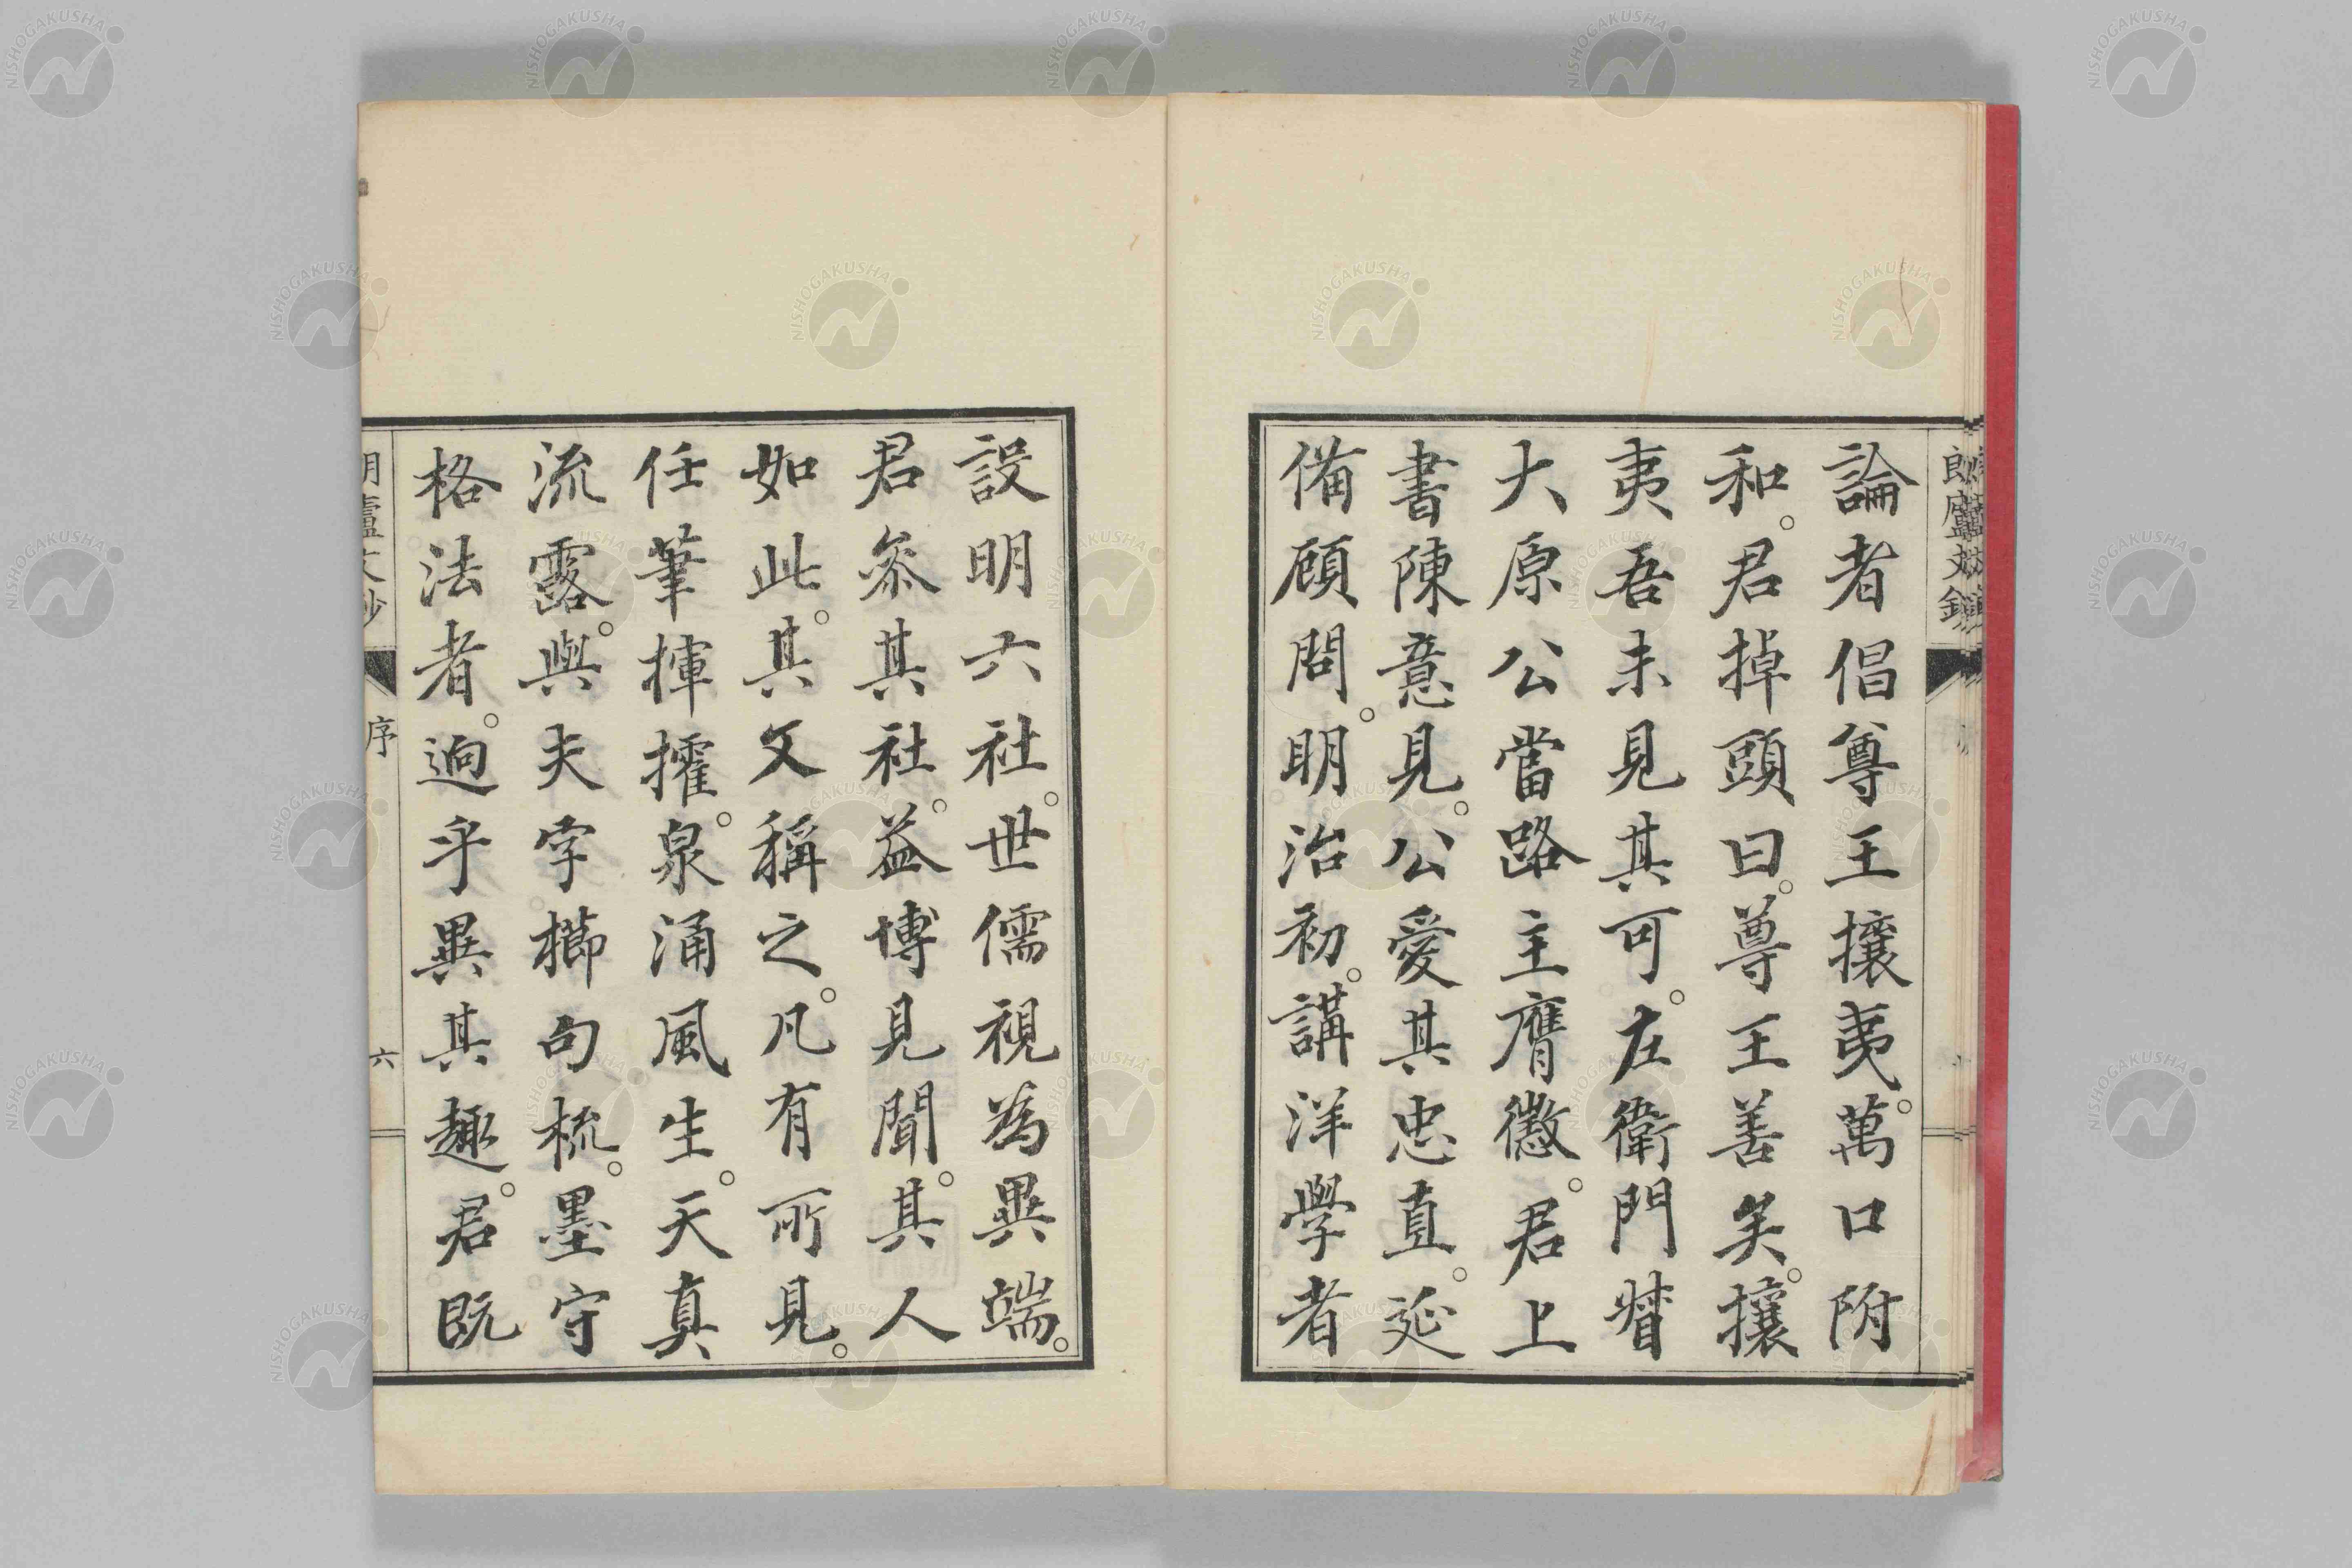 論者倡尊王攘夷。萬口附
和。君掉頭曰。尊王善矣。攘
夷吾未見其可。左衛門督
大原公當路主膺懲。君上
書陳意見。公愛其忠直。延
備顧問。明治初。講洋學者
郎廬文鈔
設明六社。世儒視為異端。
君叅其社。益博見聞。其人
如此。其文稱之。凡有所見。
任筆揮擢。泉涌風生。天真
流露。與夫字櫛句梳。墨守
格法者。逈乎異其趣。君既
朗廬文鈔
序
六
NISHOGAKUSHA